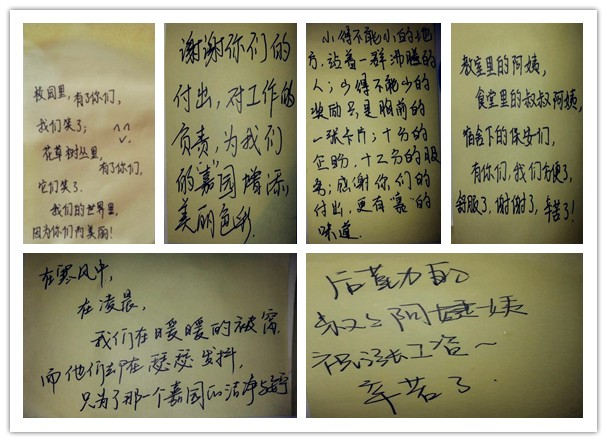 校园里,有了你们,
我们笑了;
花草树丛里,
有了你们,
它们笑了.
我们的世界里,
因为你们而美丽!
谢谢你们的
付出,对工作的
负责,为我们
的"嘉"园增添
美丽色彩.
小得不能小的地
方,站着一群沸腾的
人;少得不能少的
奖励只是胸前的
一张卡片;十分的
企盼,十二分的服
务;感谢你们的
付出,更有"嘉"的
味道.
教室里的阿姨,
食堂里的叔叔阿姨,
宿舍下的保安们,
有你们,我们方便了,
舒服了.谢谢了,辛苦了!
在寒风中,
在凌晨,
我们在暖暖的被窝,
而他们却在瑟瑟发抖,
只为了那一个嘉园的洁净与安宁
后勤处的
叔叔阿姨
祝涨工资~
辛苦了